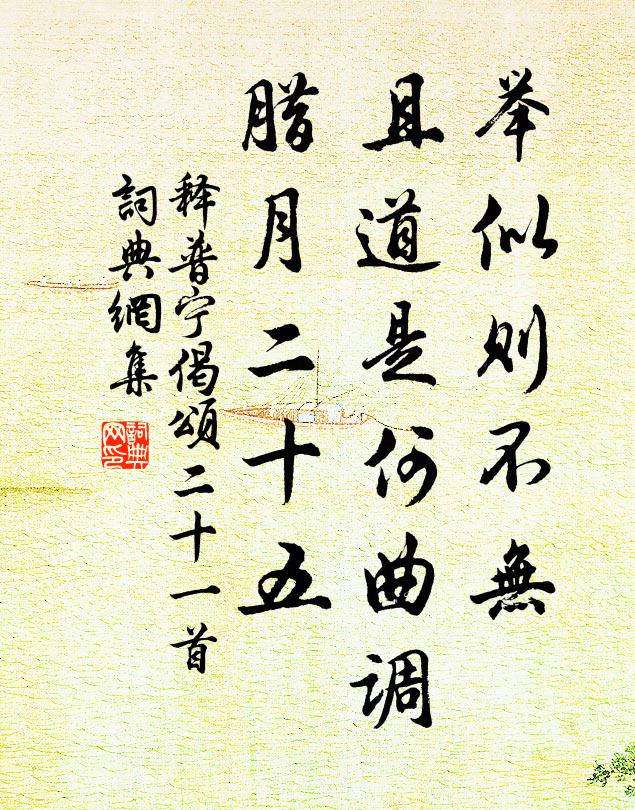 举似则不無
且道是何曲调
腊月二十五
释普宁偈頌二十一首
詞典網集
詞典
网印